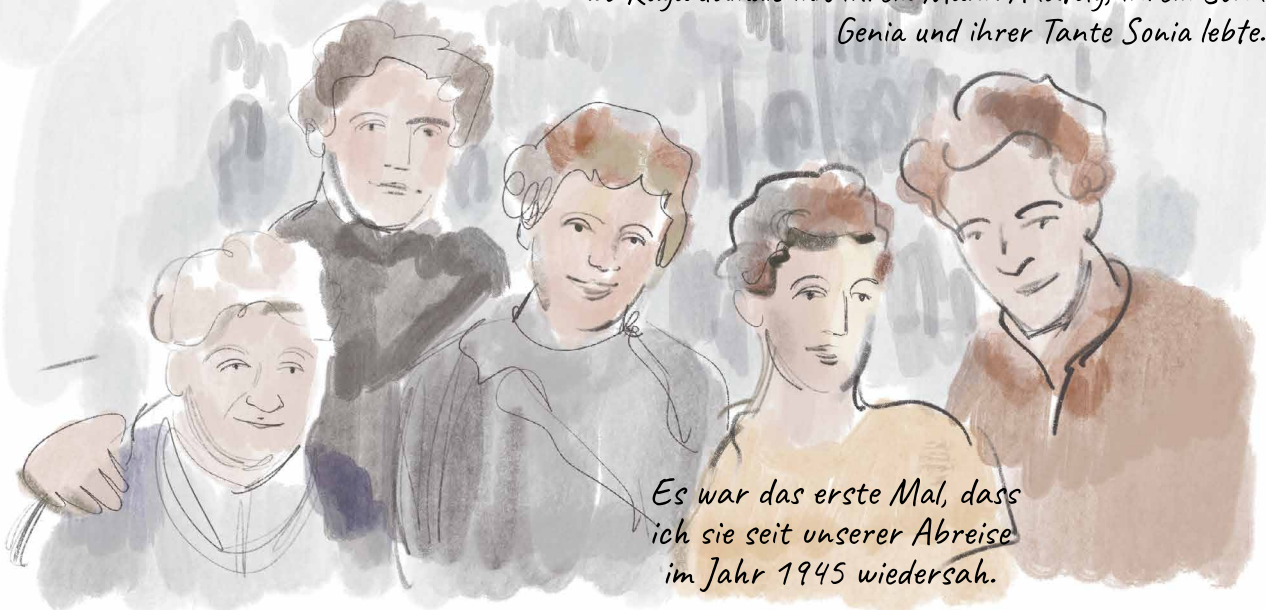 Genia und ihrer Tante Sonia lebte.
Es war das erste Mal, dass
ich sie seit unserer Abreise
im Jahr 1945 wiedersah.